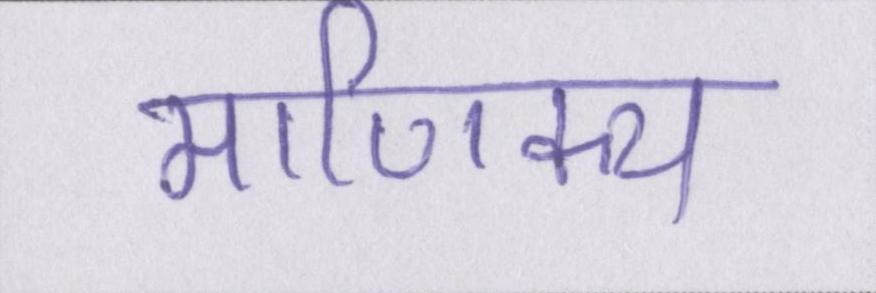 माणिक्य